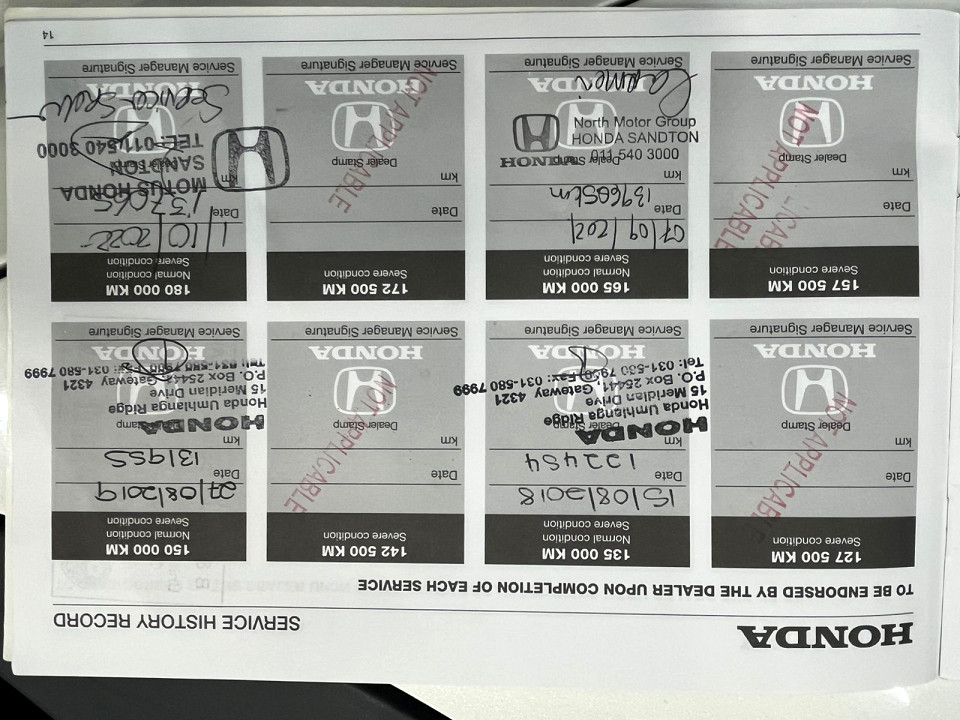 HONDA
SERVICE HISTORY RECORD
TO BE ENDORSED BY THE DEALER UPON COMPLETION OF EACH SERVICE
127 500 KM
Severe condition
Date
km
NOT APPLICABLE
Dealer Stamp
HONDA
Service Manager Signature
135 000 KM
Normal condition
Severe condition
15/08/2018
Date
122484
km
Dealer Stamp
HONDA
Honda Umhlanga Ridge
15 Meridian Drive
P.O. Box 25441, Gateway 4321
Tel: 031-580 7999 Fax: 031-580 7999
HONDA
Service Manager Signature
142 500 KM
Severe condition
Date
km
NOT APPLICABLE
Dealer Stamp
HONDA
Service Manager Signature
150 000 KM
Normal condition
Severe condition
27/08/2019
Date
131955
km
Dealer Stamp
HONDA
Honda Umhlanga Ridge
15 Meridian Drive
P.O. Box 25441, Gateway 4321
Tel: 031-580 7999 Fax: 031-580 7999
HONDA
Service Manager Signature
157 500 KM
Severe condition
Date
km
NOT APPLICABLE
Dealer Stamp
HONDA
Service Manager Signature
165 000 KM
Normal condition
Severe condition
07/09/2021
Date
139685km
km
Dealer Stamp
HONDA
North Motor Group
HONDA SANDTON
011 540 3000
HONDA
Service Manager Signature
172 500 KM
Severe condition
Date
km
NOT APPLICABLE
Dealer Stamp
HONDA
Service Manager Signature
180 000 KM
Normal condition
Severe condition
1/10/2022
Date
km
MOTUS HONDA
SANDTON
TEL: 011 540 3000
Dealer Stamp
Service
HONDA
Service Manager Signature
14